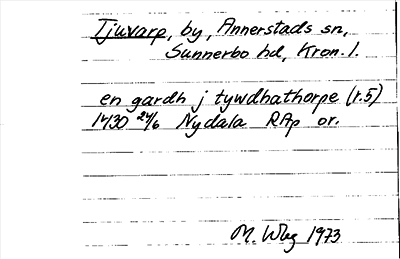 Tjuvarp, by, Annerstads sn,
Sunnerbo hd, Kron. l.
en gardh j tywdhathorpe (r.5)
1430 24/6 Nydala RAp or.
M. Wbg 1973